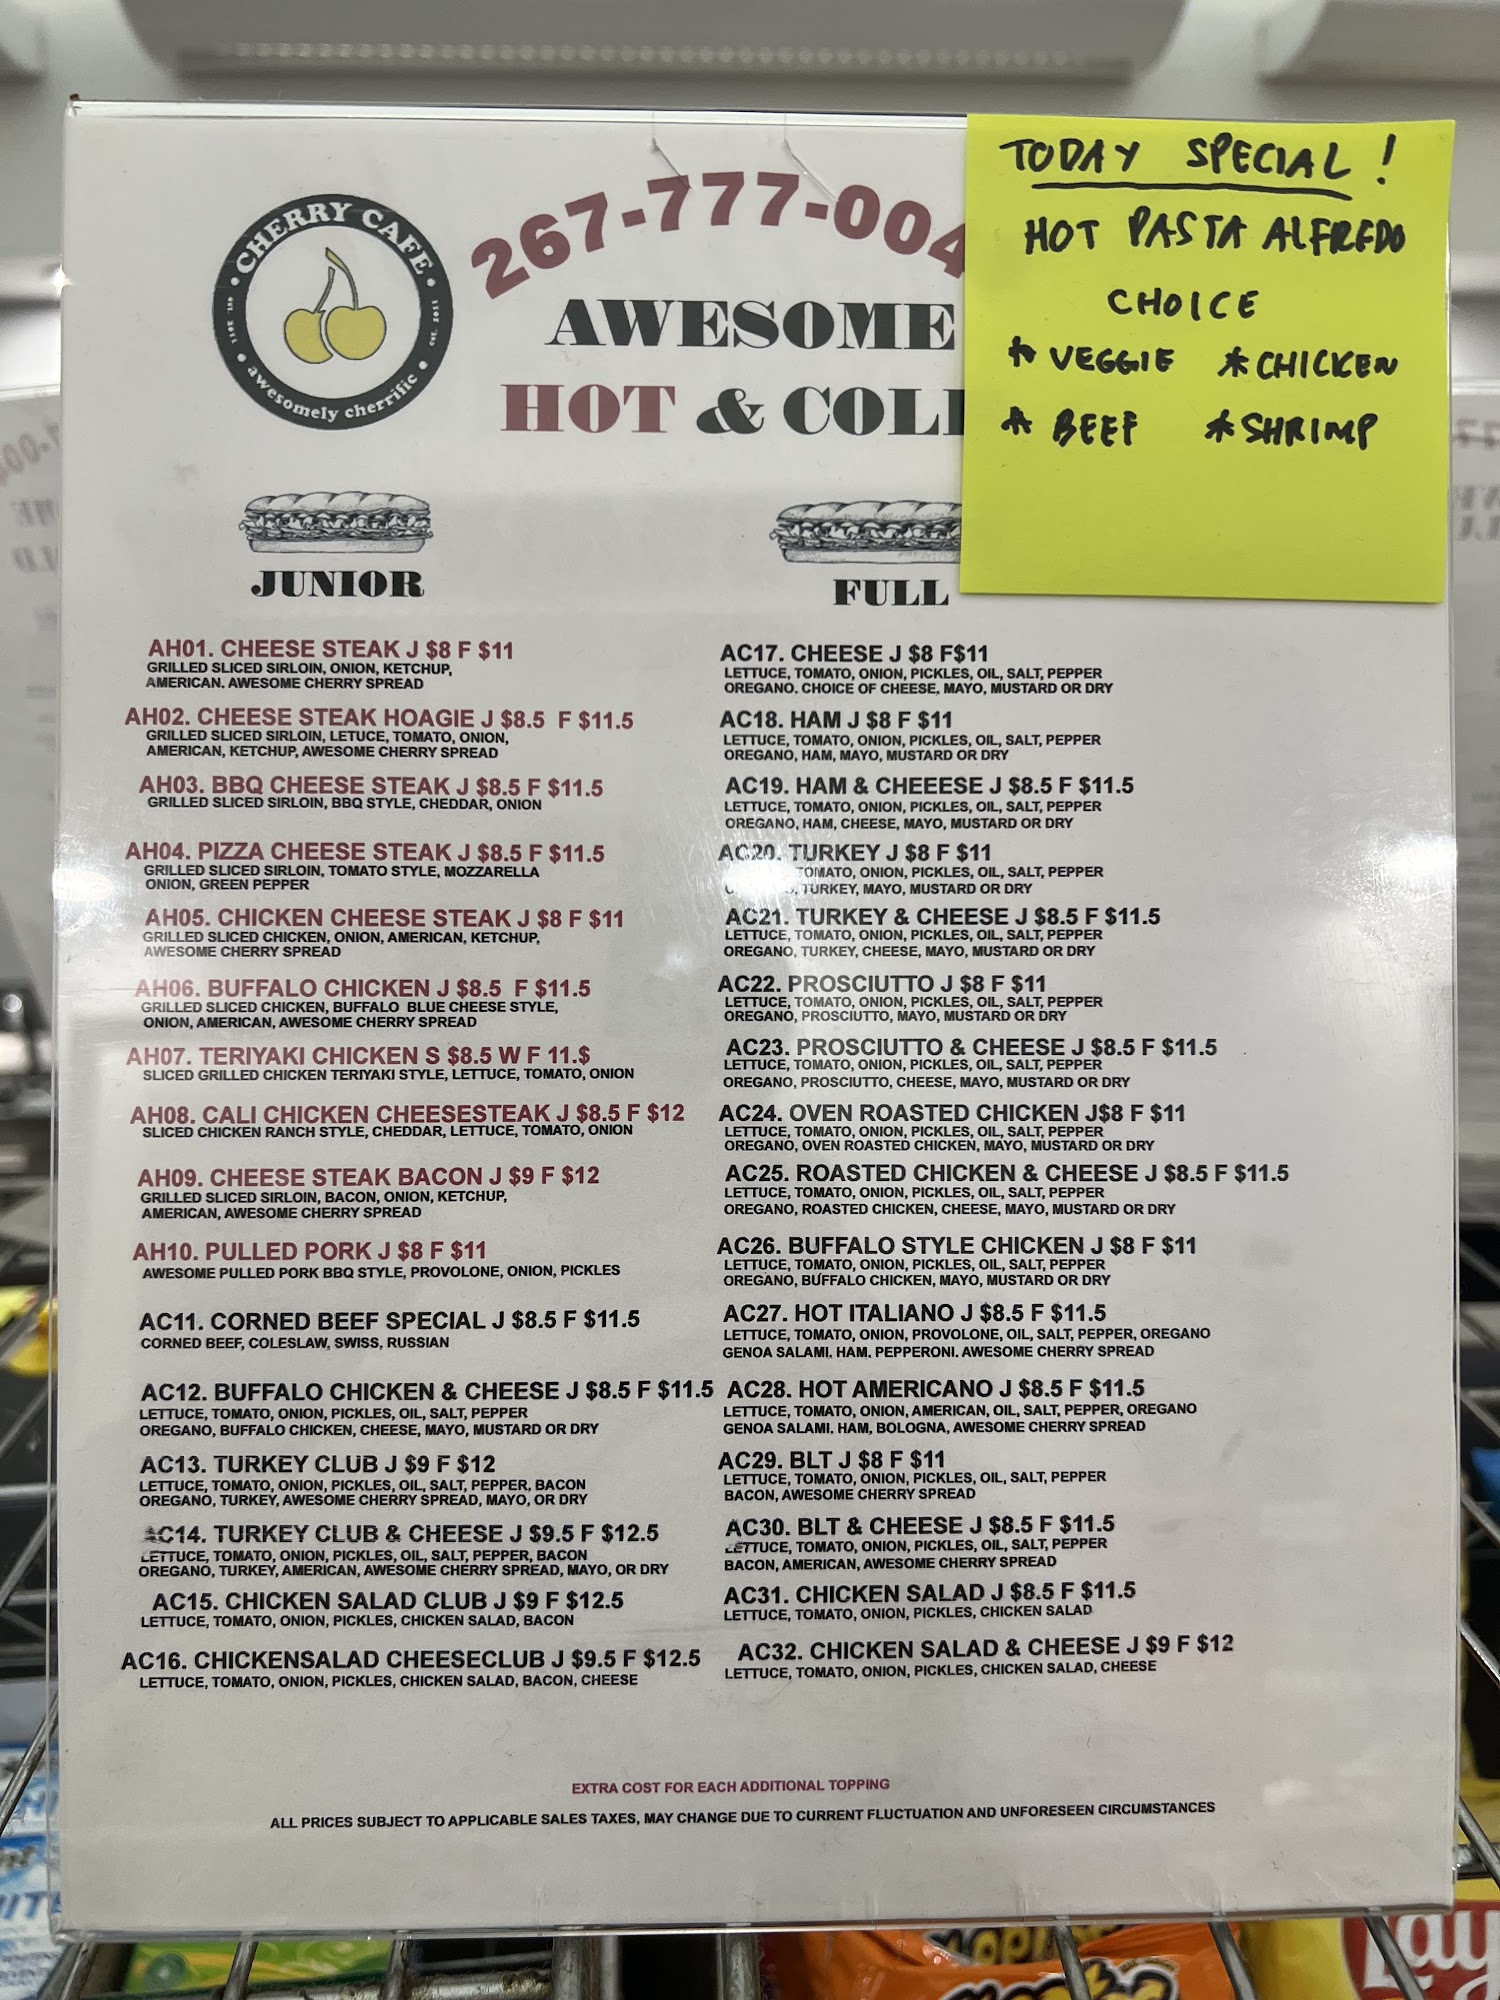 CHERRY CAFE
est. 2011
est. 2011
awesomely cherrific
267-777-004
AWESOME
HOT & COL
TODAY SPECIAL!
HOT PASTA ALFREDO
CHOICE
* VEGGIE * CHICKEN
* BEEF * SHRIMP
JUNIOR
FULL
AH01. CHEESE STEAK J $8 F $11
GRILLED SLICED SIRLOIN, ONION, KETCHUP,
AMERICAN. AWESOME CHERRY SPREAD
AH02. CHEESE STEAK HOAGIE J $8.5 F $11.5
GRILLED SLICED SIRLOIN, LETUCE, TOMATO, ONION,
AMERICAN, KETCHUP, AWESOME CHERRY SPREAD
AH03. BBQ CHEESE STEAK J $8.5 F $11.5
GRILLED SLICED SIRLOIN, BBQ STYLE, CHEDDAR, ONION
AH04. PIZZA CHEESE STEAK J $8.5 F $11.5
GRILLED SLICED SIRLOIN, TOMATO STYLE, MOZZARELLA
ONION, GREEN PEPPER
AH05. CHICKEN CHEESE STEAK J $8 F $11
GRILLED SLICED CHICKEN, ONION, AMERICAN, KETCHUP,
AWESOME CHERRY SPREAD
AH06. BUFFALO CHICKEN J $8.5 F $11.5
GRILLED SLICED CHICKEN, BUFFALO BLUE CHEESE STYLE,
ONION, AMERICAN, AWESOME CHERRY SPREAD
AH07. TERIYAKI CHICKEN S $8.5 W F 11.$
SLICED GRILLED CHICKEN TERIYAKI STYLE, LETTUCE, TOMATO, ONION
AH08. CALI CHICKEN CHEESESTEAK J $8.5 F $12
SLICED CHICKEN RANCH STYLE, CHEDDAR, LETTUCE, TOMATO, ONION
AH09. CHEESE STEAK BACON J $9 F $12
GRILLED SLICED SIRLOIN, BACON, ONION, KETCHUP,
AMERICAN, AWESOME CHERRY SPREAD
AH10. PULLED PORK J $8 F $11
AWESOME PULLED PORK BBQ STYLE, PROVOLONE, ONION, PICKLES
AC11. CORNED BEEF SPECIAL J $8.5 F $11.5
CORNED BEEF, COLESLAW, SWISS, RUSSIAN
AC12. BUFFALO CHICKEN & CHEESE J $8.5 F $11.5
LETTUCE, TOMATO, ONION, PICKLES, OIL, SALT, PEPPER
OREGANO, BUFFALO CHICKEN, CHEESE, MAYO, MUSTARD OR DRY
AC13. TURKEY CLUB J $9 F $12
LETTUCE, TOMATO, ONION, PICKLES, OIL, SALT, PEPPER, BACON
OREGANO, TURKEY, AWESOME CHERRY SPREAD, MAYO, OR DRY
AC14. TURKEY CLUB & CHEESE J $9.5 F $12.5
LETTUCE, TOMATO, ONION, PICKLES, OIL, SALT, PEPPER, BACON
OREGANO, TURKEY, AMERICAN, AWESOME CHERRY SPREAD, MAYO, OR DRY
AC15. CHICKEN SALAD CLUB J $9 F $12.5
LETTUCE, TOMATO, ONION, PICKLES, CHICKEN SALAD, BACON
AC16. CHICKENSALAD CHEESECLUB J $9.5 F $12.5
LETTUCE, TOMATO, ONION, PICKLES, CHICKEN SALAD, BACON, CHEESE
AC17. CHEESE J $8 F$11
LETTUCE, TOMATO, ONION, PICKLES, OIL, SALT, PEPPER
OREGANO. CHOICE OF CHEESE, MAYO, MUSTARD OR DRY
AC18. HAM J $8 F $11
LETTUCE, TOMATO, ONION, PICKLES, OIL, SALT, PEPPER
OREGANO, HAM, MAYO, MUSTARD OR DRY
AC19. HAM & CHEEESE J $8.5 F $11.5
LETTUCE, TOMATO, ONION, PICKLES, OIL, SALT, PEPPER
OREGANO, HAM, CHEESE, MAYO, MUSTARD OR DRY
AC20. TURKEY J $8 F $11
TOMATO, ONION, PICKLES, OIL, SALT, PEPPER
TURKEY, MAYO, MUSTARD OR DRY
AC21. TURKEY & CHEESE J $8.5 F $11.5
LETTUCE, TOMATO, ONION, PICKLES, OIL, SALT, PEPPER
OREGANO, TURKEY, CHEESE, MAYO, MUSTARD OR DRY
AC22. PROSCIUTTO J $8 F $11
LETTUCE, TOMATO, ONION, PICKLES, OIL, SALT, PEPPER
OREGANO, PROSCIUTTO, MAYO, MUSTARD OR DRY
AC23. PROSCIUTTO & CHEESE J $8.5 F $11.5
LETTUCE, TOMATO, ONION, PICKLES, OIL, SALT, PEPPER
OREGANO, PROSCIUTTO, CHEESE, MAYO, MUSTARD OR DRY
AC24. OVEN ROASTED CHICKEN J$8 F $11
LETTUCE, TOMATO, ONION, PICKLES, OIL, SALT, PEPPER
OREGANO, OVEN ROASTED CHICKEN, MAYO, MUSTARD OR DRY
AC25. ROASTED CHICKEN & CHEESE J $8.5 F $11.5
LETTUCE, TOMATO, ONION, PICKLES, OIL, SALT, PEPPER
OREGANO, ROASTED CHICKEN, CHEESE, MAYO, MUSTARD OR DRY
AC26. BUFFALO STYLE CHICKEN J $8 F $11
LETTUCE, TOMATO, ONION, PICKLES, OIL, SALT, PEPPER
OREGANO, BUFFALO CHICKEN, MAYO, MUSTARD OR DRY
AC27. HOT ITALIANO J $8.5 F $11.5
LETTUCE, TOMATO, ONION, PROVOLONE, OIL, SALT, PEPPER, OREGANO
GENOA SALAMI, HAM, PEPPERONI. AWESOME CHERRY SPREAD
AC28. HOT AMERICANO J $8.5 F $11.5
LETTUCE, TOMATO, ONION, AMERICAN, OIL, SALT, PEPPER, OREGANO
GENOA SALAMI, HAM, BOLOGNA, AWESOME CHERRY SPREAD
AC29. BLT J $8 F $11
LETTUCE, TOMATO, ONION, PICKLES, OIL, SALT, PEPPER
BACON, AWESOME CHERRY SPREAD
AC30. BLT & CHEESE J $8.5 F $11.5
LETTUCE, TOMATO, ONION, PICKLES, OIL, SALT, PEPPER
BACON, AMERICAN, AWESOME CHERRY SPREAD
AC31. CHICKEN SALAD J $8.5 F $11.5
LETTUCE, TOMATO, ONION, PICKLES, CHICKEN SALAD
AC32. CHICKEN SALAD & CHEESE J $9 F $12
LETTUCE, TOMATO, ONION, PICKLES, CHICKEN SALAD, CHEESE
EXTRA COST FOR EACH ADDITIONAL TOPPING
ALL PRICES SUBJECT TO APPLICABLE SALES TAXES, MAY CHANGE DUE TO CURRENT FLUCTUATION AND UNFORESEEN CIRCUMSTANCES